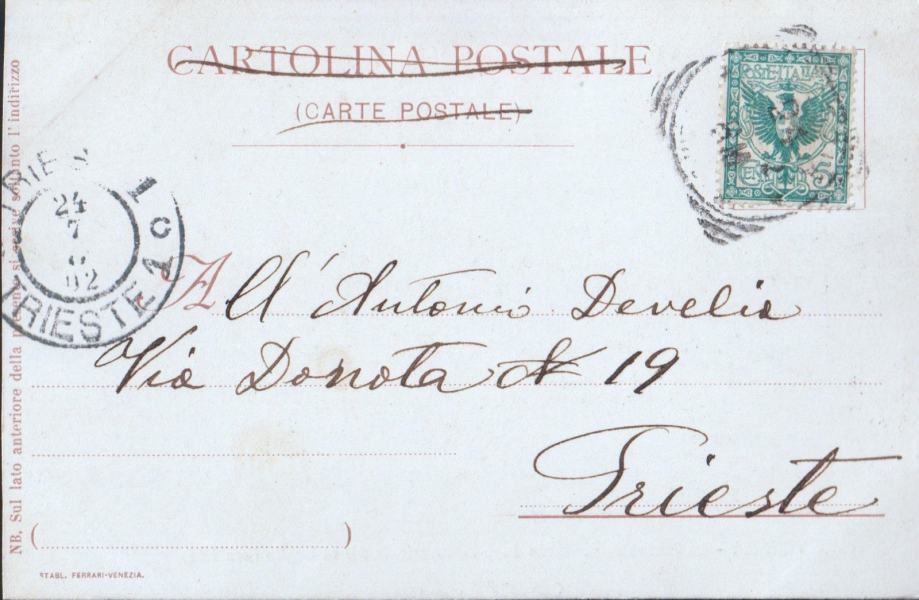 CARTOLINA POSTALE
(CARTE POSTALE)
POSTE ITALIANE
5
TRIESTE
1
24
7
02
TRIESTE
All' Antonio Develia
Via Donota N 19
Trieste
NB. Sul lato anteriore della presente si scrive soltanto l'indirizzo
STABL. FERRARI-VENEZIA.